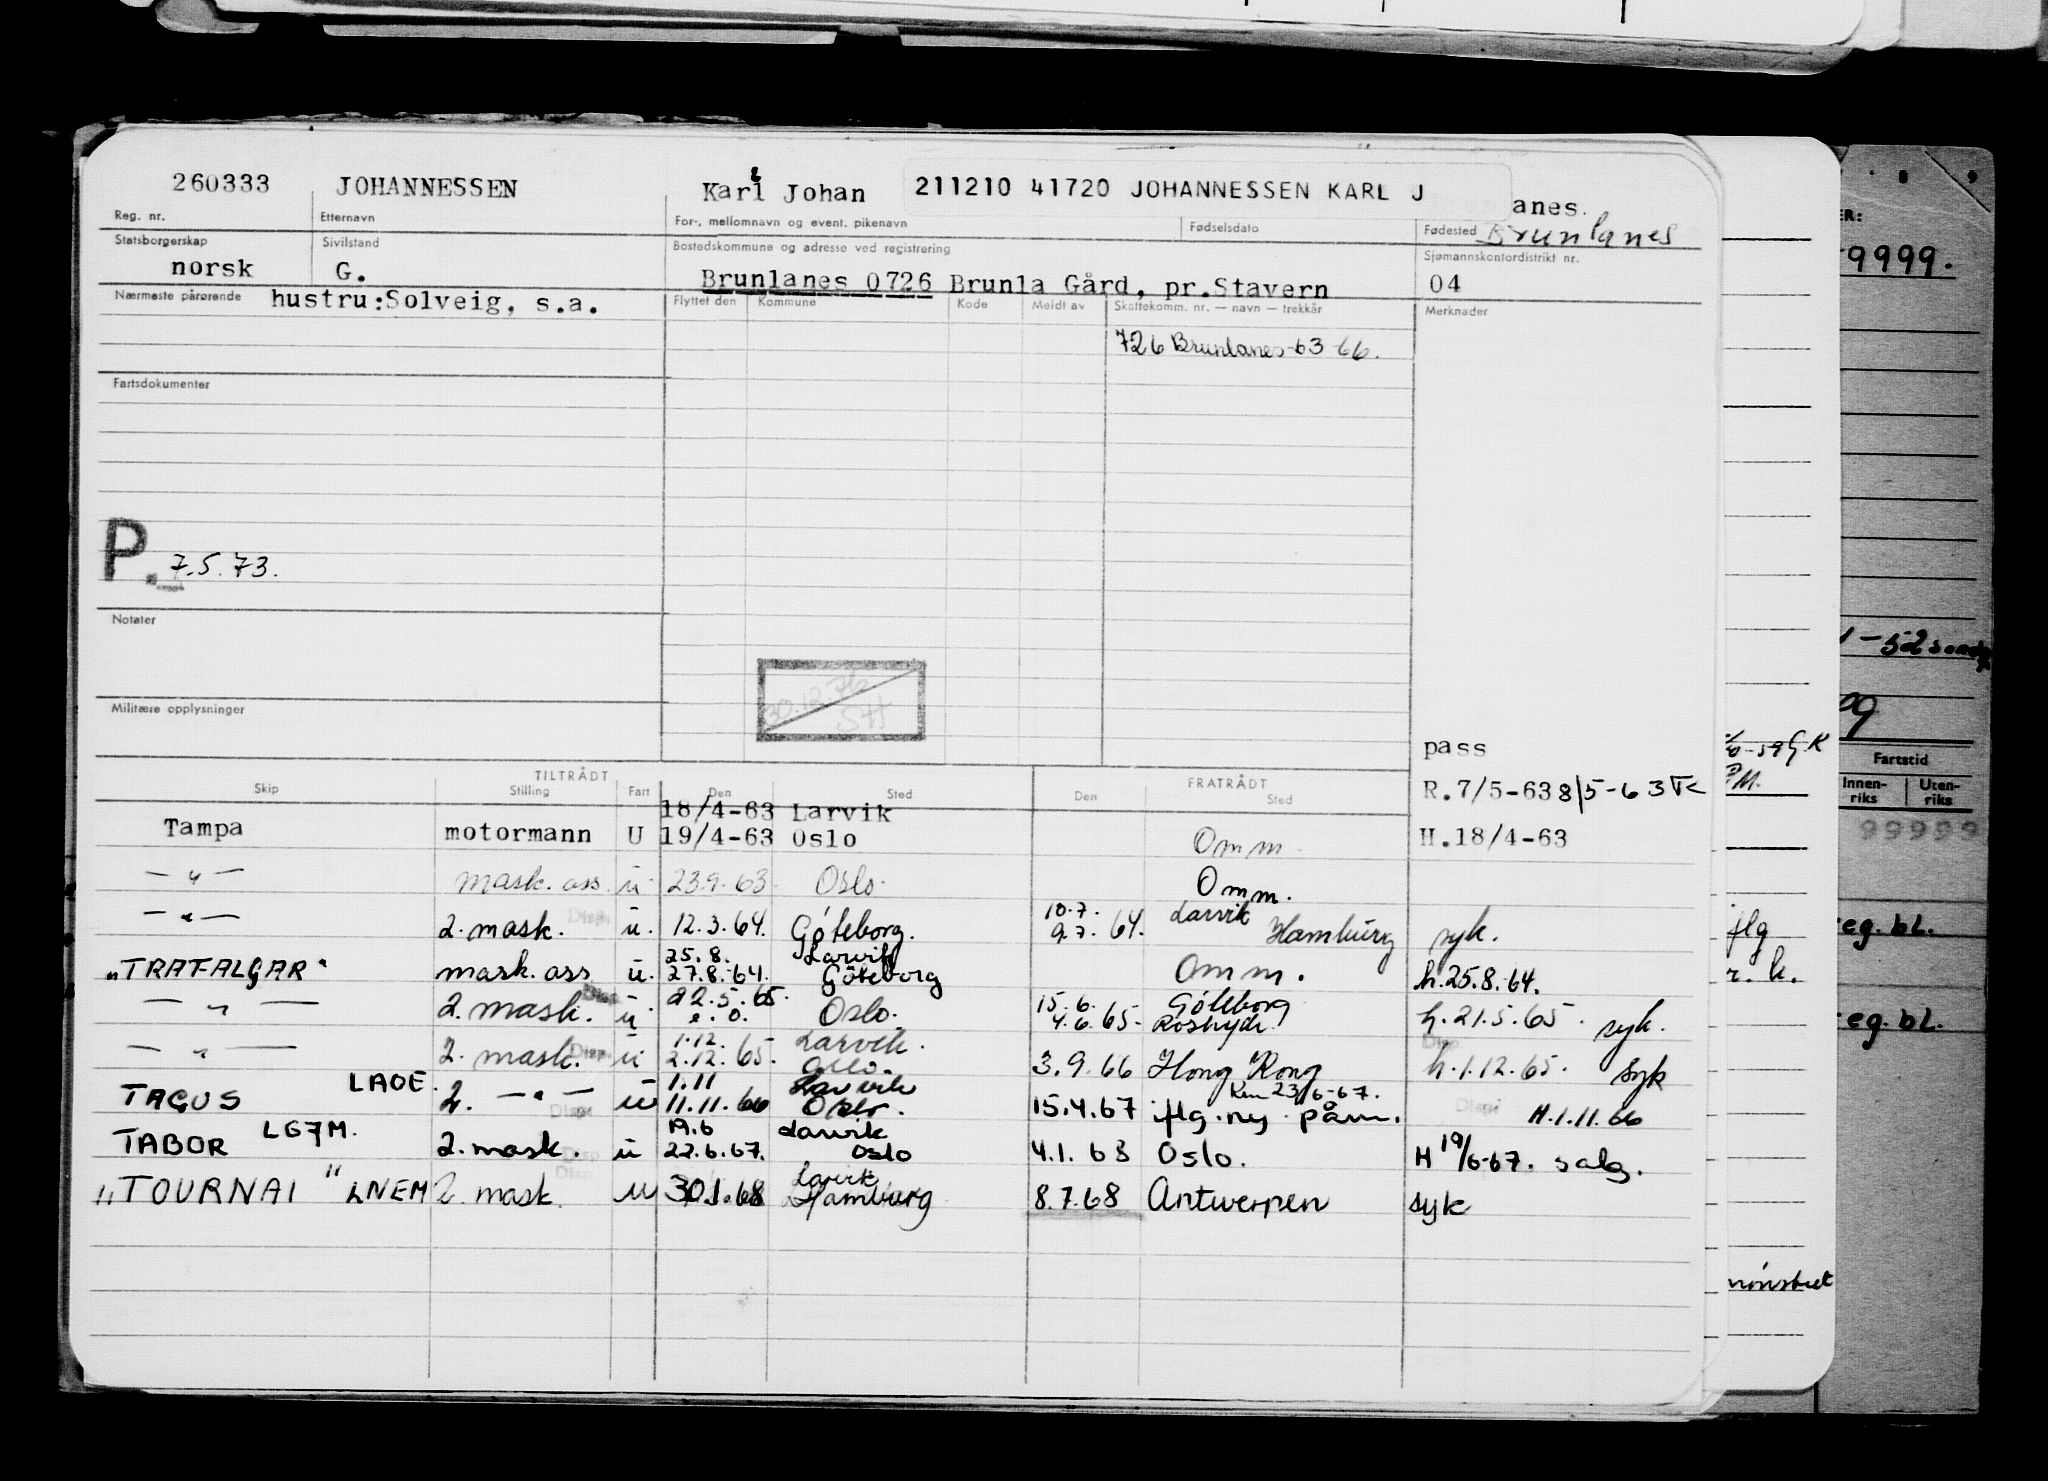 260333 JOHANNESSEN Karl Johan 211210 41720 JOHANNESSEN KARL J anes.
Reg. nr. Etternavn For-, mellomnavn og event. pikenavn Fødselsdato Fødested Brunlanes
Statsborgerskap Sivilstand Bostedskommune og adresse ved registrering Sjømannskontordistrikt nr.
norsk G. Brunlanes 0726 Brunla Gård, pr.Stavern 04
Nærmeste pårørende hustru:Solveig, s.a. Flyttet den Kommune Kode Meldt av Skattekomm. nr. — navn — trekkår Merknader
726 Brunlanes-63-66.
Fartsdokumenter
P. 7.5.73.
Notater
30.12.76
SH
Militære opplysninger
pass
TILTRÅDT FRATRÅDT
Skip Stilling Fart Den Sted Den Sted R.7/5-63 8/5-63
18/4-63 Larvik
Tampa motormann U 19/4-63 Oslo Omm H.18/4-63
— " — mask. ass. u. 23.9.63. Oslo. Omm.
— " — 2. mask. Disp. u. 12.3.64. Göteborg. 10.7. 9.7. 64. Larvik Hamburg syk.
25.8. Larvik
"TRAFALGAR" mask. ass u. 27.8.64. Göteborg Omm. h.25.8.64.
— " — 2. mask. Disp. u 22.5.65. Oslo. 15.6. Göteborg h.21.5.65. syk.
e.o. 4.6.65-
— " — 2. mask. Disp. u. 1.12. Larvik. Disp.
2.12.65. Oslo. 3.9.66 Hong Kong h.1.12.65. syk
TAGUS LAOE. 2. — " — Disp. u 1.11 Larvik Km 23/6-67.
11.11.66 Oslo. 15.4.67 iflg. ny påm. Disp. H.1.11.66
TABOR LG7M. 2. mask. Disp u 19.6 Larvik
22.6.67. Oslo 4.1.68 Oslo. H 19/6-67. salg.
"TOURNAI" LNEM 2. mask. Disp u 30.1.68 Larvik Hamburg 8.7.68 Antwerpen syk
9999.
Fartstid
Innen-riks Uten-riks
99999
iflg
reg. bl.
r. k.
reg. bl.
mønstret